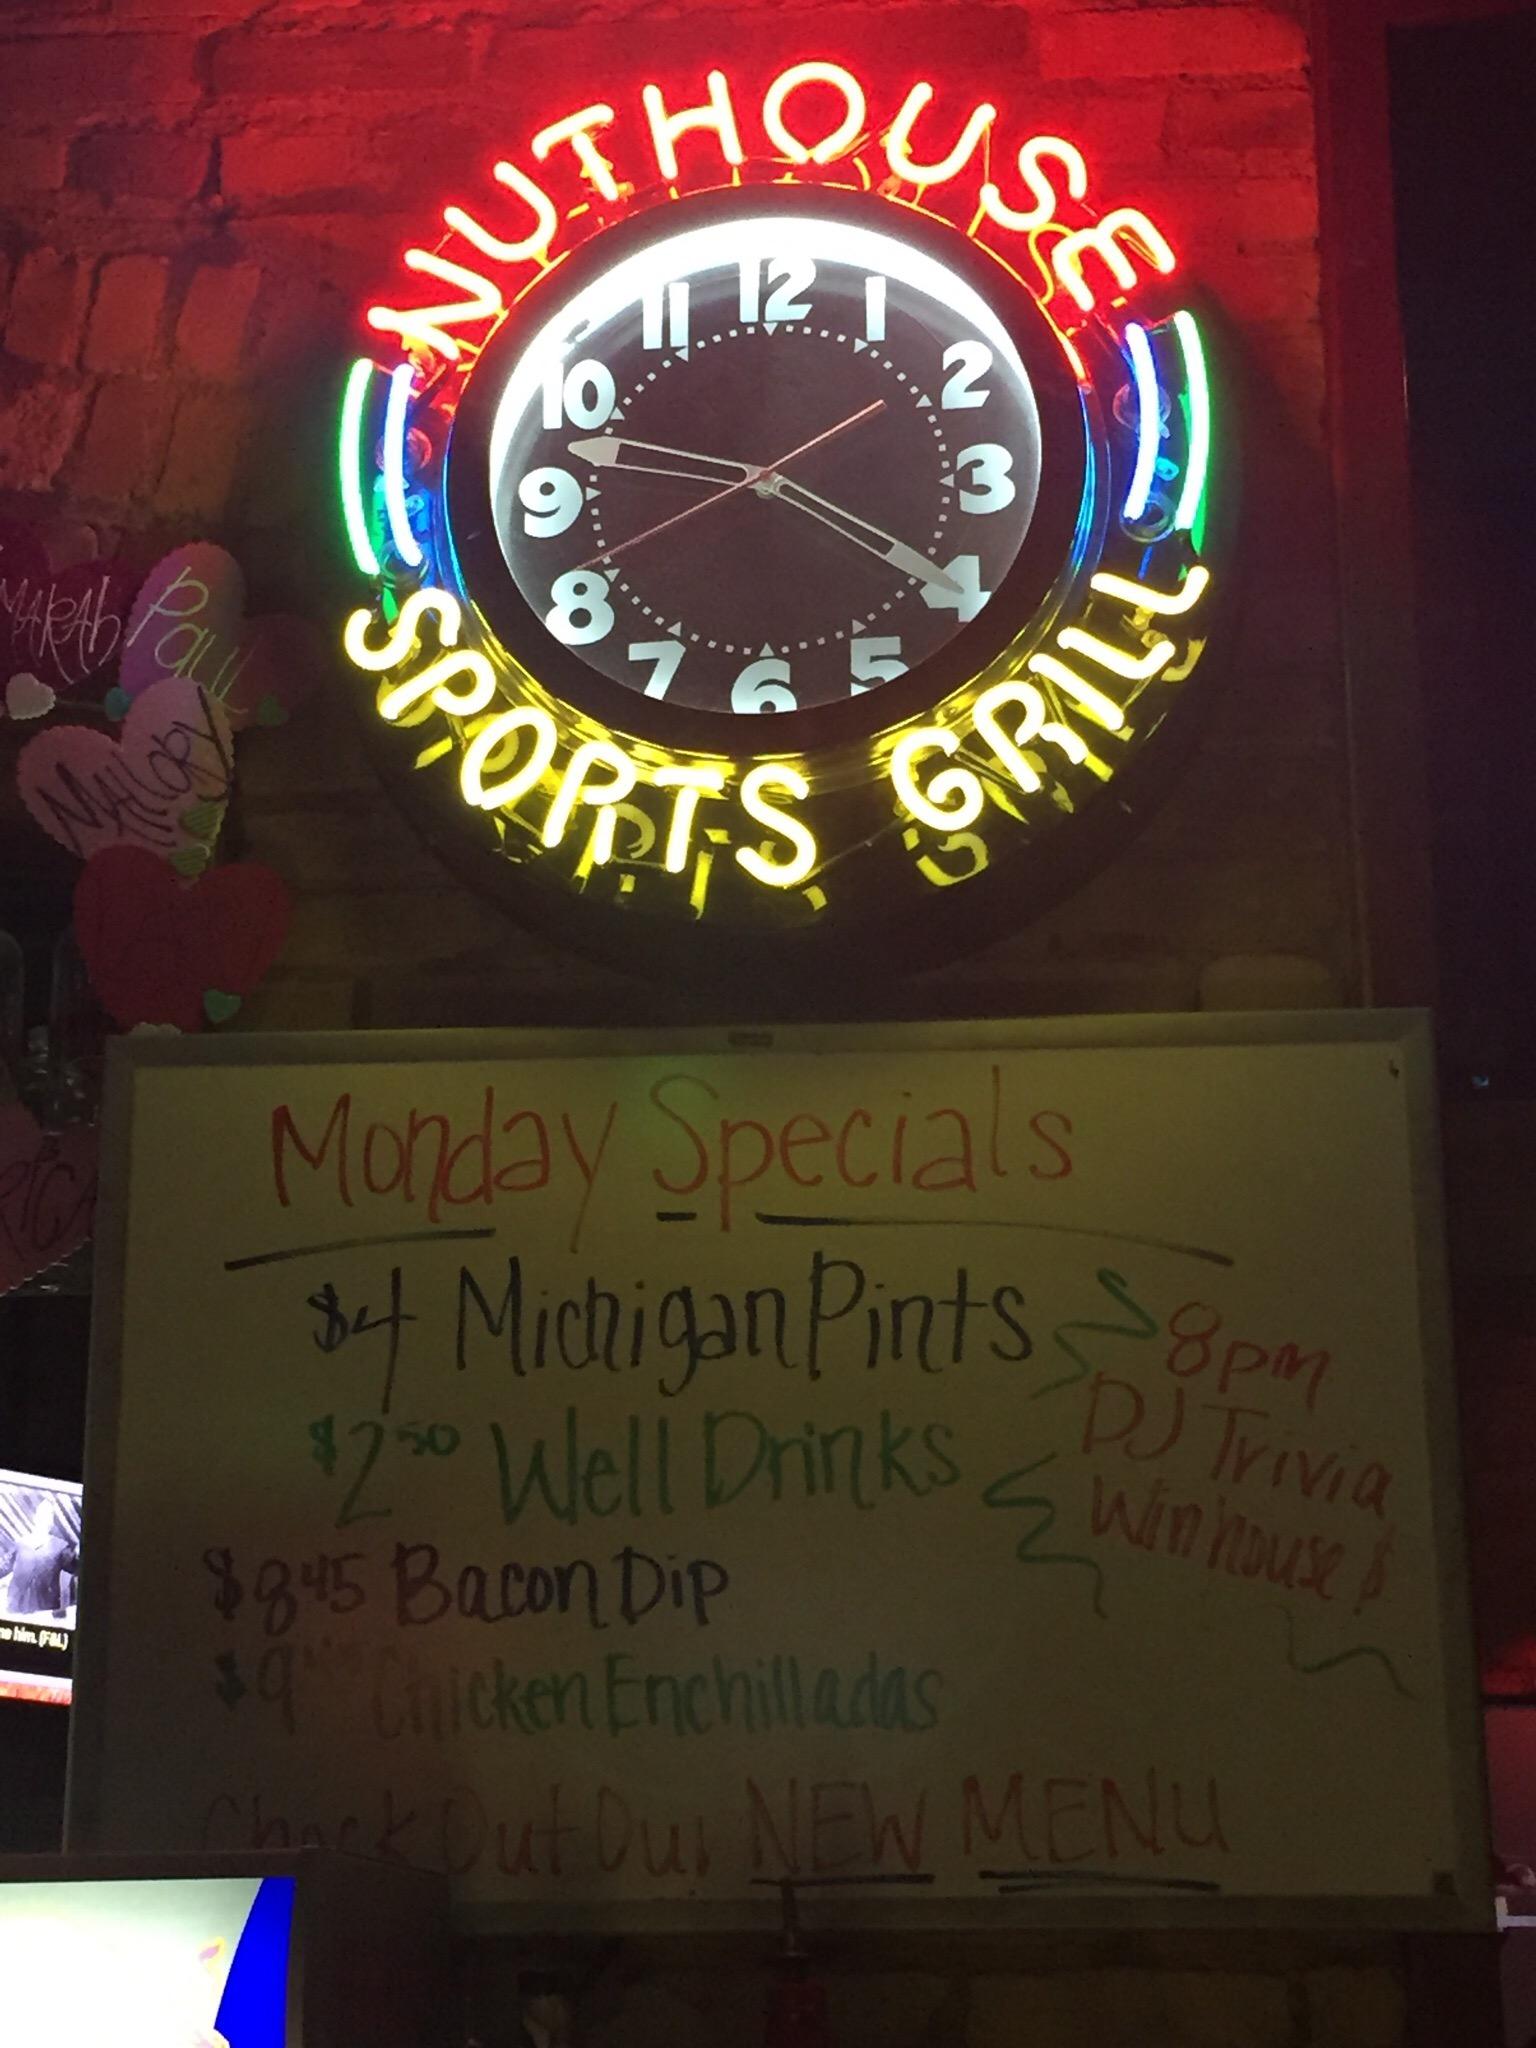 NUTHOUSE
12
11 1
10 2
9 3
8 4
7 6 5
SPORTS GRILL
MARAh
Paul
MAllory
Monday Specials
$4 Michigan Pints
8pm
DJ Trivia
Win house $
$2 50 Well Drinks
$8 45 Bacon Dip
$9 Chicken Enchilladas
Check Out Our NEW MENU
me him. (F&L)